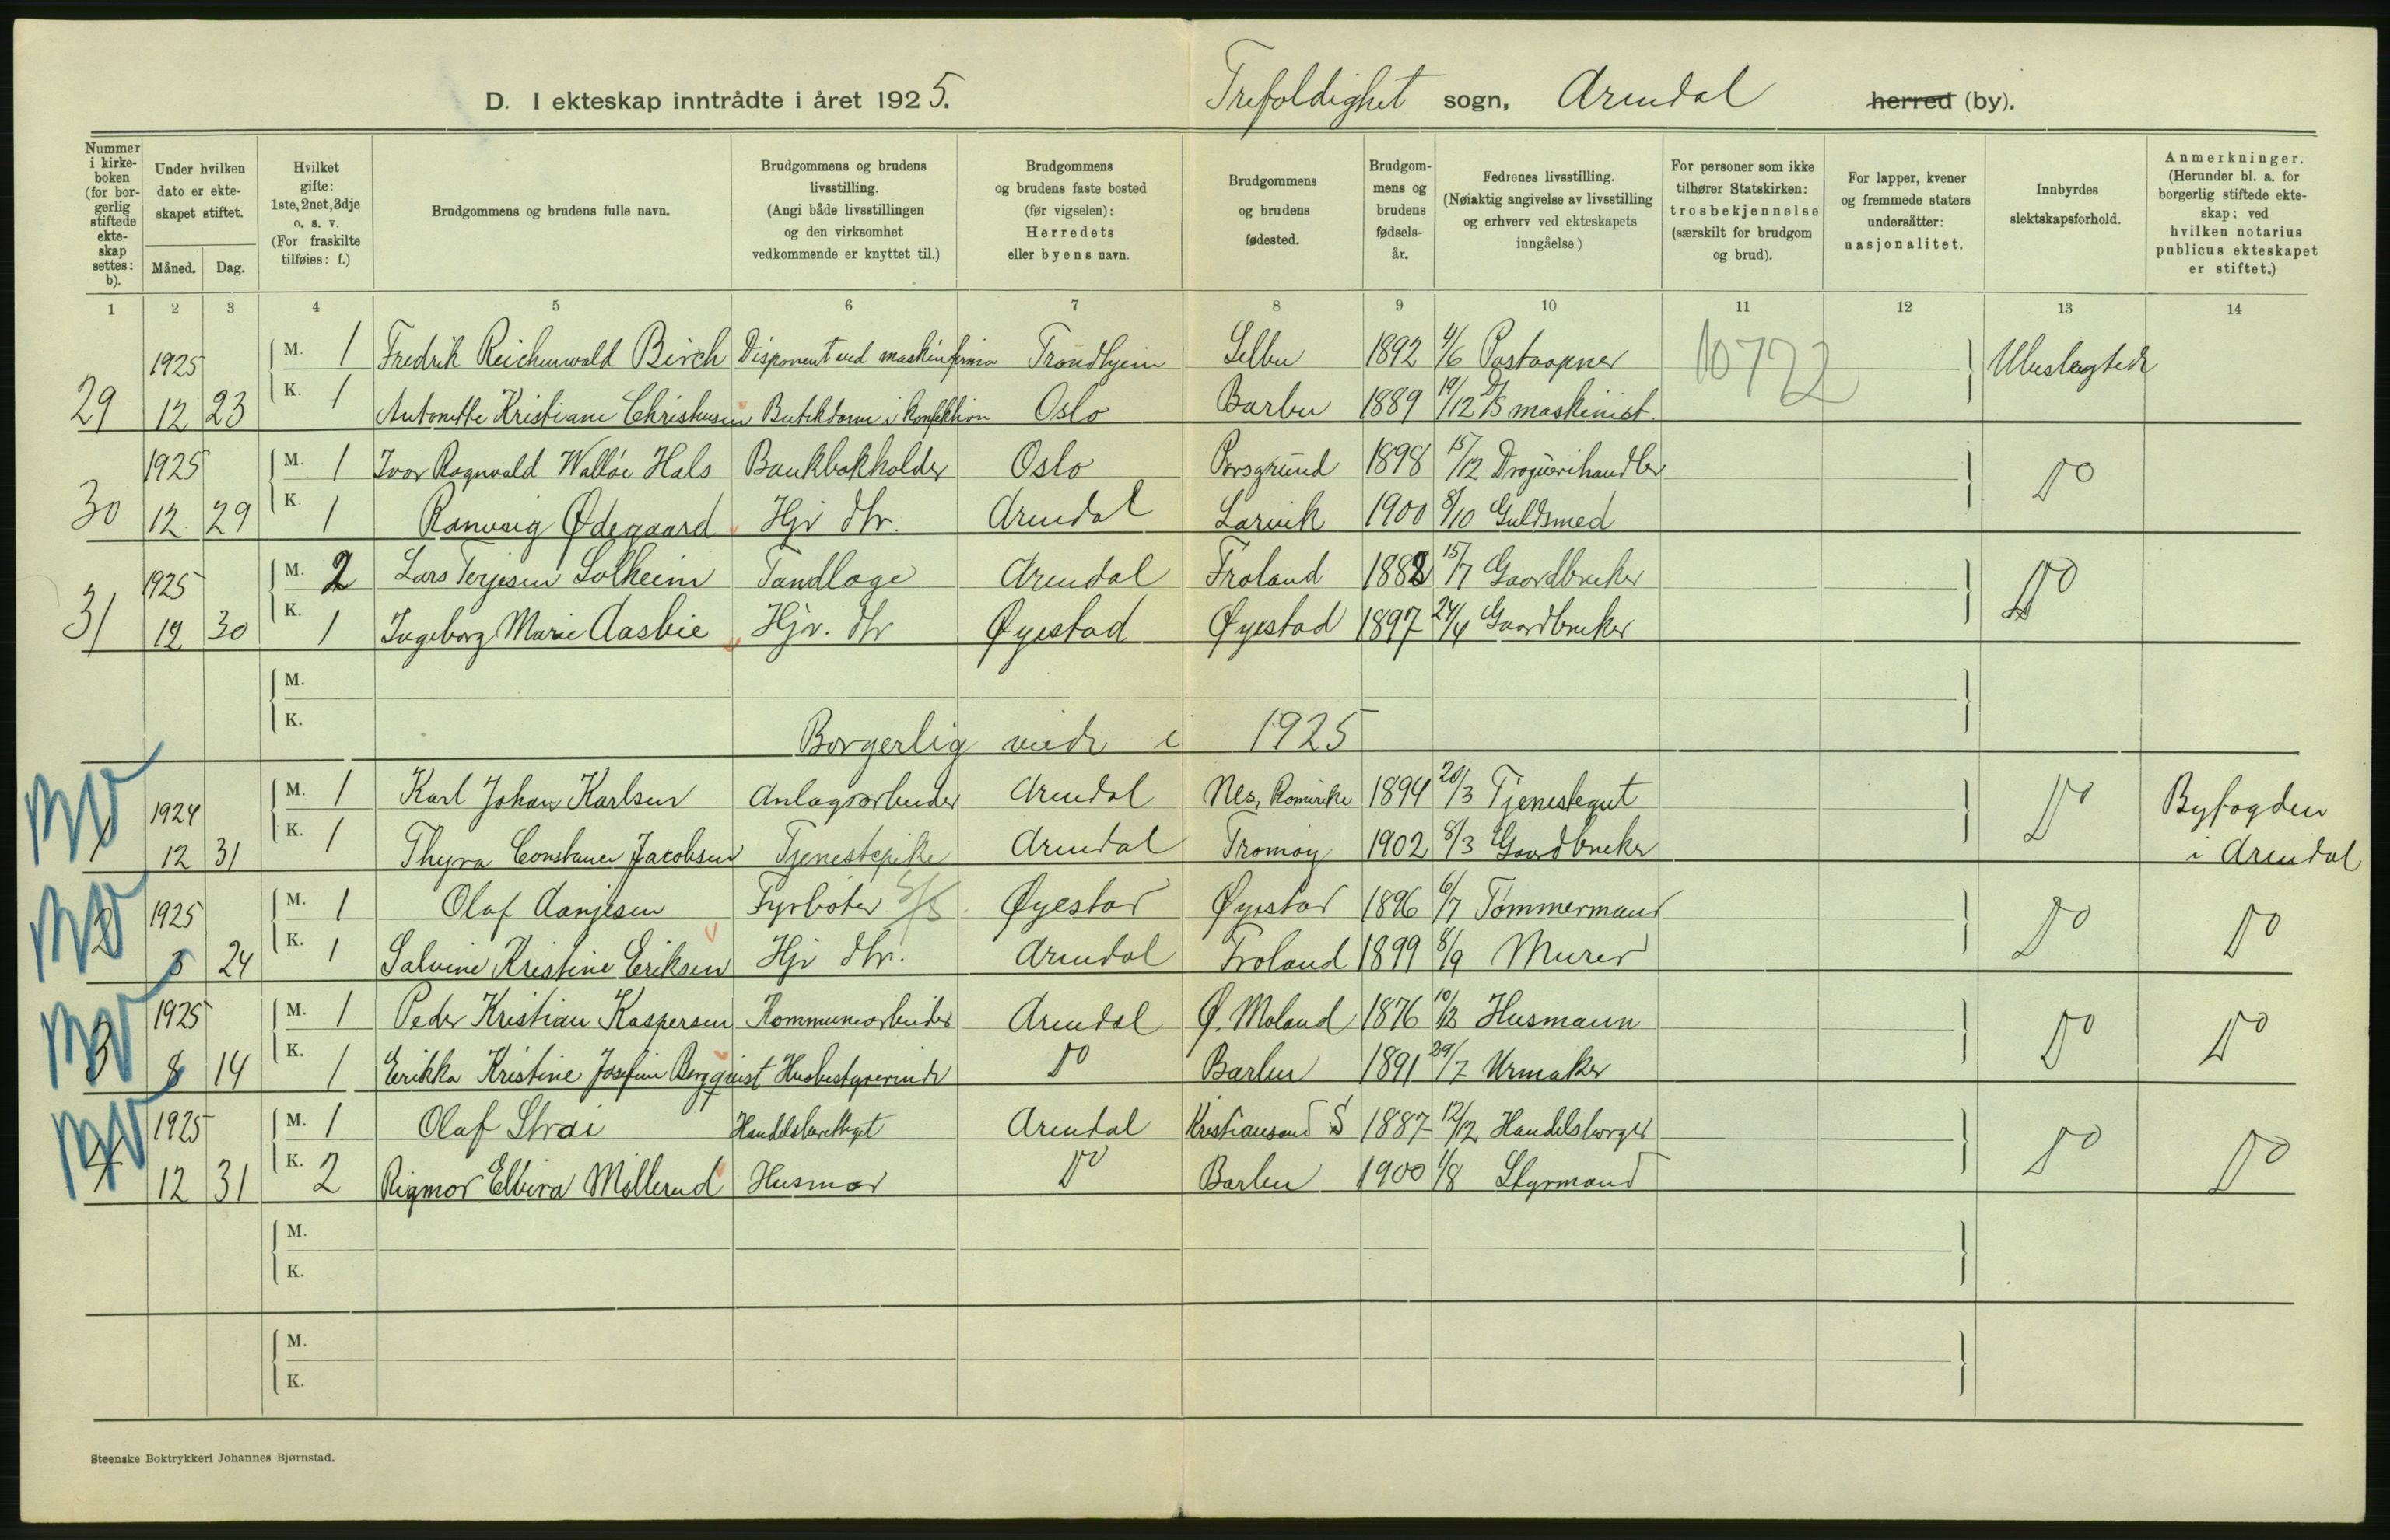 D. I ekteskap inntrådte i året 1925. Trefoldighet sogn, Arendal herred (by).
Nummer i kirkeboken (for borgerlig stiftede ekteskap settes: b).
Under hvilken dato er ekteskapet stiftet.
Måned. Dag.
Hvilket gifte: 1ste, 2net, 3dje o. s. v. (For fraskilte tilføies: f.)
Brudgommens og brudens fulle navn.
Brudgommens og brudens livsstilling. (Angi både livsstillingen og den virksomhet vedkommende er knyttet til.)
Brudgommens og brudens faste bosted (før vigselen): Herredets eller byens navn.
Brudgommens og brudens fødested.
Brudgommens og brudens fødselsår.
Fedrenes livsstilling. (Nøiaktig angivelse av livsstilling og erhverv ved ekteskapets inngåelse)
For personer som ikke tilhører Statskirken: trosbekjennelse (særskilt for brudgom og brud).
For lapper, kvener og fremmede staters undersåtter: nasjonalitet.
Innbyrdes slektskapsforhold.
Anmerkninger. (Herunder bl. a. for borgerlig stiftede ekteskap: ved hvilken notarius publicus ekteskapet er stiftet.)
1 2 3 4 5 6 7 8 9 10 11 12 13 14
1925 M. 1 Fredrik Reichenwald Birch Disponent ved maskinfirma Trondhjem Selbu 1892 4/6 Postaapner 10722 Ubeslegtede
29 12 23 K. 1 Antonette Kristiane Christensen Butikdame i konfektion Oslo Barbu 1889 19/12 D/S maskinist.
1925 M. 1 Ivar Ragnvald Walløe Hals Bankbokholder Oslo Porsgrund 1898 15/12 Droguerihandler Do
30 12 29 K. 1 Ranveig Ødegaard Hjv dtr. Arendal Larvik 1900 8/10 Guldsmed
1925 M. 2 Lars Terjesen Solheim Tandlæge Arendal Froland 1882 15/7 Gaardbruker Do
31 12 30 K. 1 Ingeborg Marie Aasbie Hjv. dtr Øyestad Øyestad 1897 24/4 Gaardbruker
M.
K.
Borgerlig viede i 1925
1924 M. 1 Karl Johan Karlsen Anlægsarbeider Arendal Nes, Romerike 1894 20/3 Tjenestegut Do Byfogden
1 12 31 K. 1 Thyra Constance Jacobsen Tjenestepike Arendal Tromøy 1902 8/3 Gaardbruker i Arendal
1925 M. 1 Olaf Aanjesen Fyrbøter D/S Øyestad Øyestad 1896 6/7 Tømmermand Do Do
2 3 24 K. 1 Salvine Kristine Eriksen Hjv dtr. Arendal Froland 1899 8/9 Murer
1925 M. 1 Peder Kristian Kaspersen Kommunearbeider Arendal Ø. Moland 1876 10/12 Husmann Do Do
3 8 14 K. 1 Erikka Kristine Josefine Bergqvist Husbestyrerinde Do Barbu 1891 29/7 Urmaker
1925 M. 1 Olaf Strai Handelsberettiget Arendal Kristiansand S 1887 12/12 Handelsborger Do Do
4 12 31 K. 2 Rigmor Elvira Møllerud Husmor Do Barbu 1900 1/8 Styrmand
M.
K.
M.
K.
Steenske Boktrykkeri Johannes Bjørnstad.